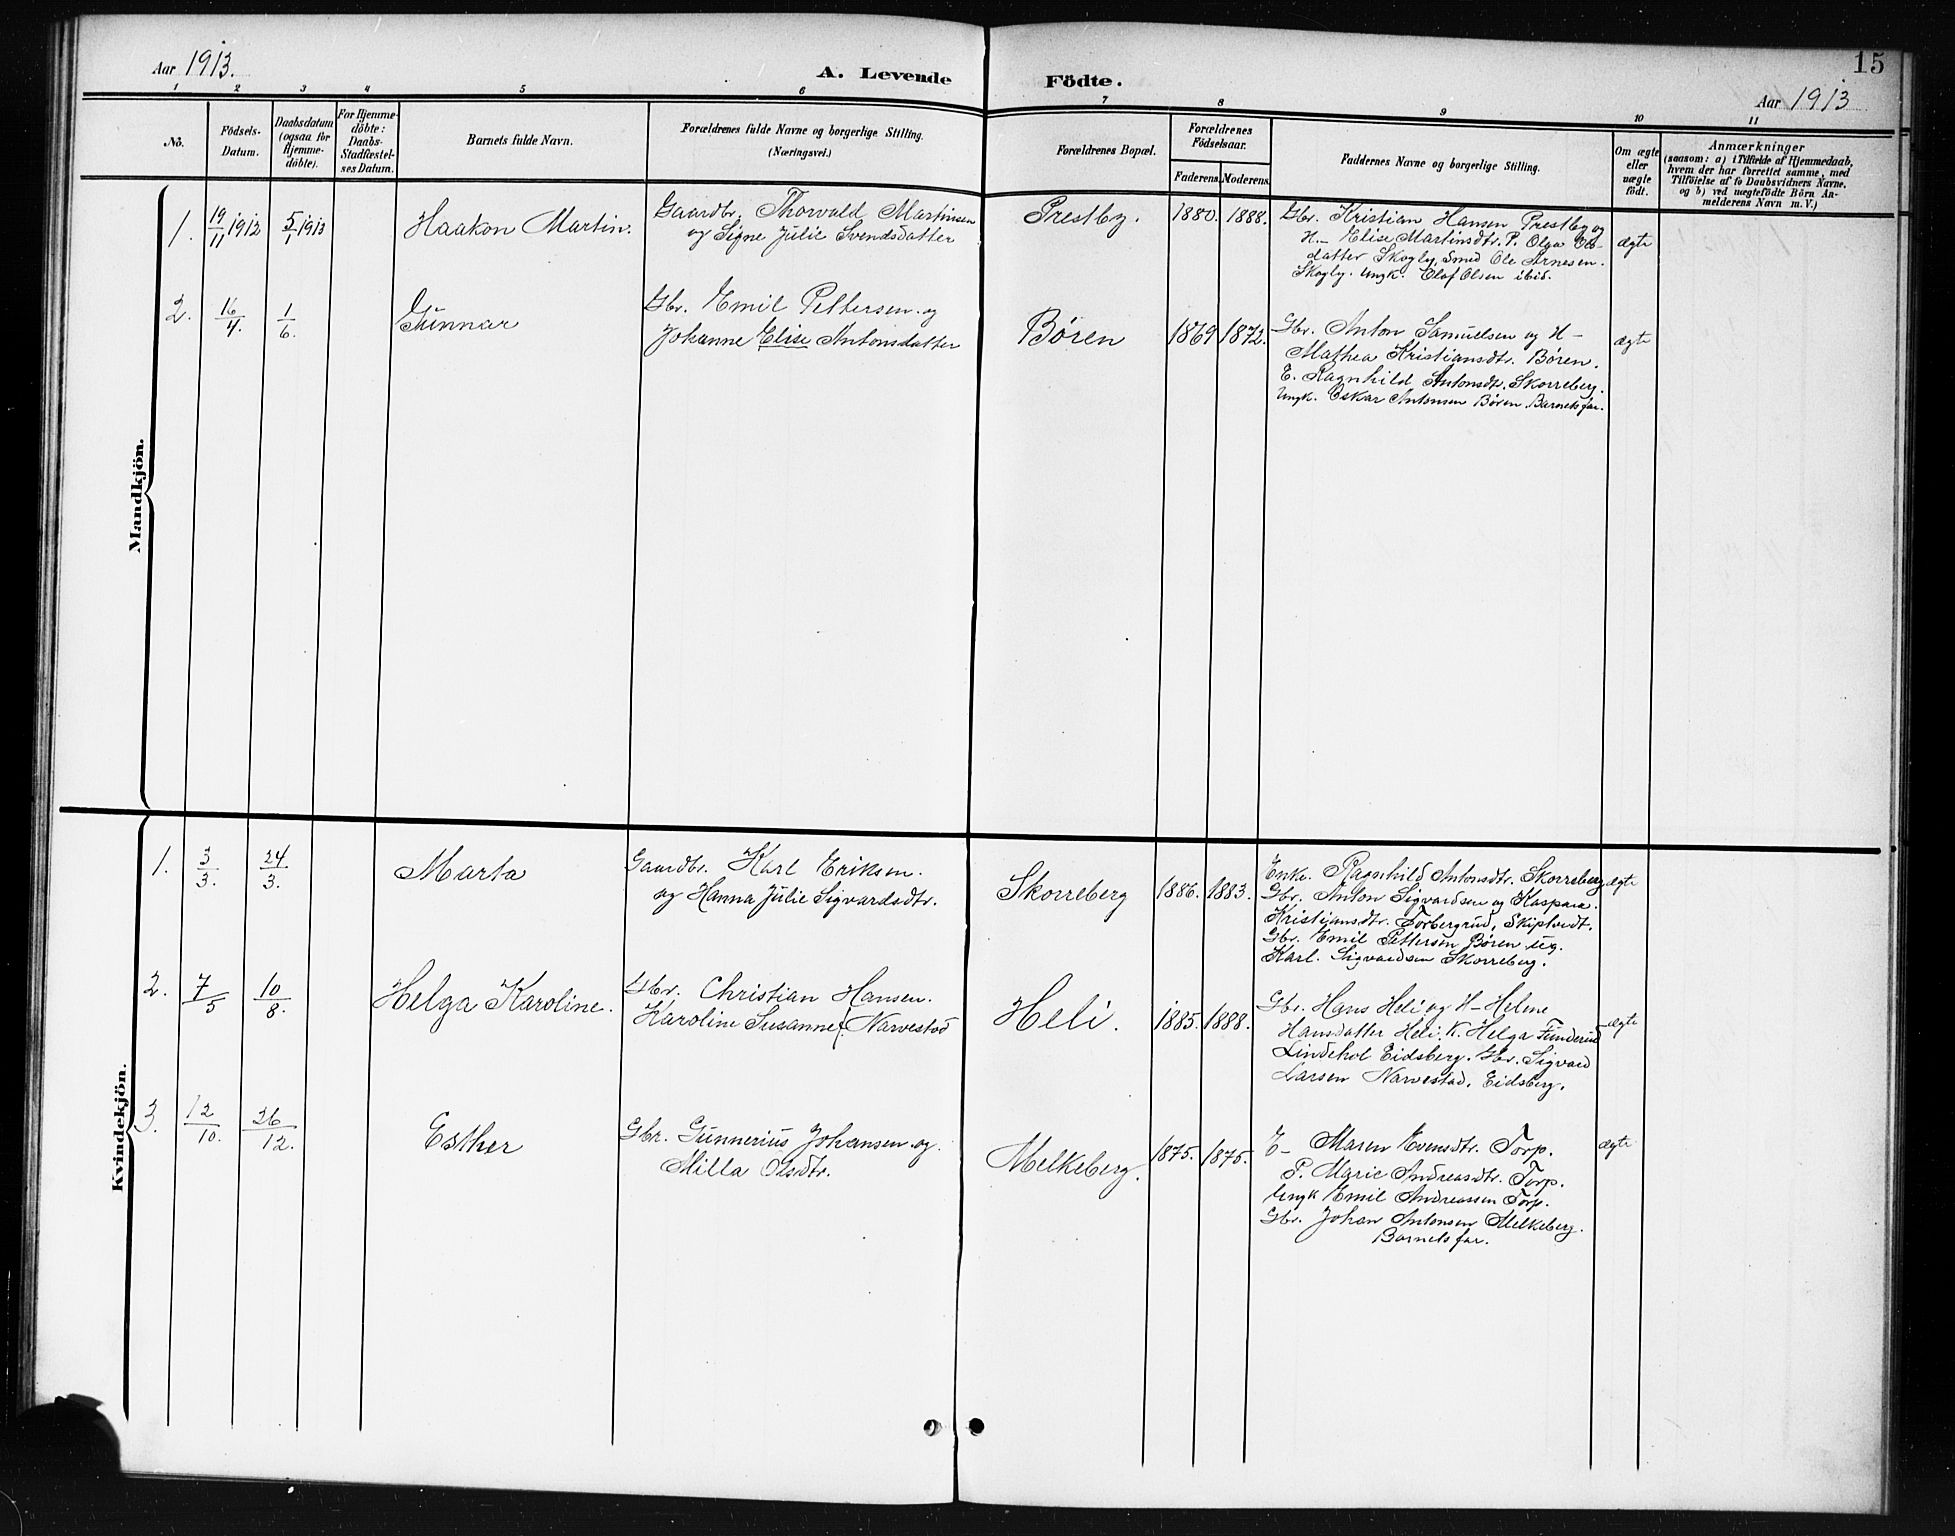 Aar 1913.
A. Levende Födte.
15
Aar 1913
1 2 3 4 5 6 7 8 9 10 11
No.
Födsels-
Datum.
Daabsdatum
(ogsaa for
Hjemme-
döbte).
For Hjemme-
döbte:
Daabs-
Stadfæstel-
ses Datum.
Barnets fulde Navn.
Forældrenes fulde Navne og borgerlige Stilling.
(Næringsvei.)
Forældrenes Bopæl.
Forældrenes
Födselsaar.
Faderens. Moderens.
Faddernes Navne og borgerlige Stilling.
Om ægte
eller
uægte
födt.
Anmærkninger
(saasom: a) i Tilfælde af Hjemmedaab,
hvem der har forrettet samme, med
Tilföielse af to Daabsvidners Navne,
og b) ved uægtefödte Börn An-
melderens Navn m. V.)
Mandkjön.
1. 19/11 1912 5/1 1913 Haakon Martin.
Gaardbr. Thorvald Martinsen
og Signe Julie Svendsdatter
Prestby. 1880. 1888.
Gbr. Kristian Hansen Prestby og
H— Elise Martinsdtr. P. Olga Ols-
datter Skogly, Smed Ole Arnesen.
Skogly. Ungk. Olaf Olsen ibid.
ægte
2. 16/4. 1/6. Gunnar
Gbr. Emil Pettersen og
Johanne Elise Antonsdatter
Børen 1869 1872.
Gbr. Anton Samuelsen og H—
Mathea Kristiansdtr. Børen.
E. Ragnhild Antonsdtr. Skorreberg.
Ungk. Oskar Antonsen Børen. Barnets far.
ægte
Kvindekjön.
1. 3/3. 24/3. Marta
Gaardbr. Karl Eriksen.
og Hanna Julie Sigvardsdtr.
Skorreberg 1886. 1883.
Enke. Ragnhild Antonsdtr. Skorreberg
Gbr. Anton Sigvardsen og Kaspara
Kristiansdtr. Torbergrud, Skiptvedt.
Gbr. Emil Pettersen Børen
Karl Sigvardsen Skorreberg.
ægte
2. 7/5 10/8. Helga Karoline.
Gbr. Christian Hansen.
Karoline Susanne f. Narvestad
Heli. 1885. 1888.
Gbr. Hans Heli og H— Helene
Hansdatter Heli. K. Helga Funderud
Lindehol Eidsberg. Gbr. Sigvard
Larsen Narvestad, Eidsberg.
ægte
3. 12/10. 26/12. Esther
Gbr. Gunnerius Johansen og
Milla Olsdtr.
Melkeberg. 1875. 1875.
E— Maren Evensdtr. Torp.
P. Marie Andreasdtr. Torp.
Ungk Emil Andreassen Torp.
Gbr. Johan Antonsen Melkeberg.
Barnets far.
ægte